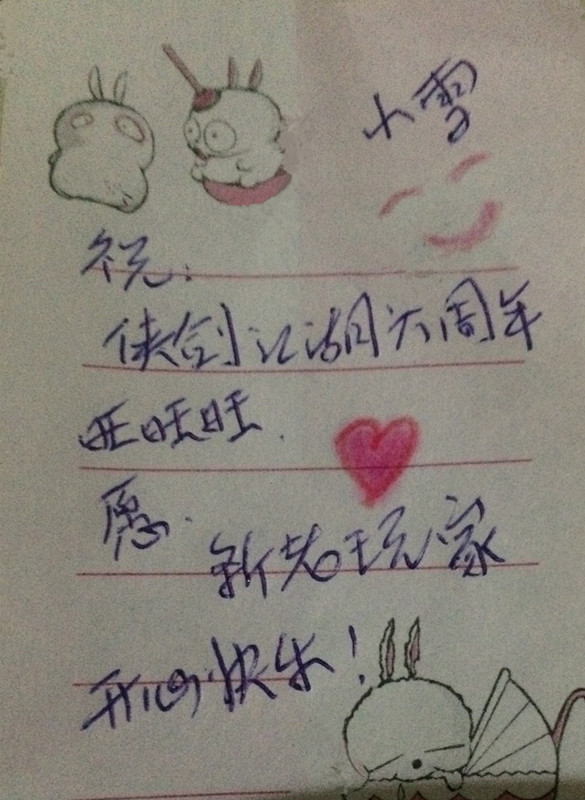 小雪
祝:
侠剑江湖六周年
旺旺旺.
愿.
新老玩家
开心快乐!